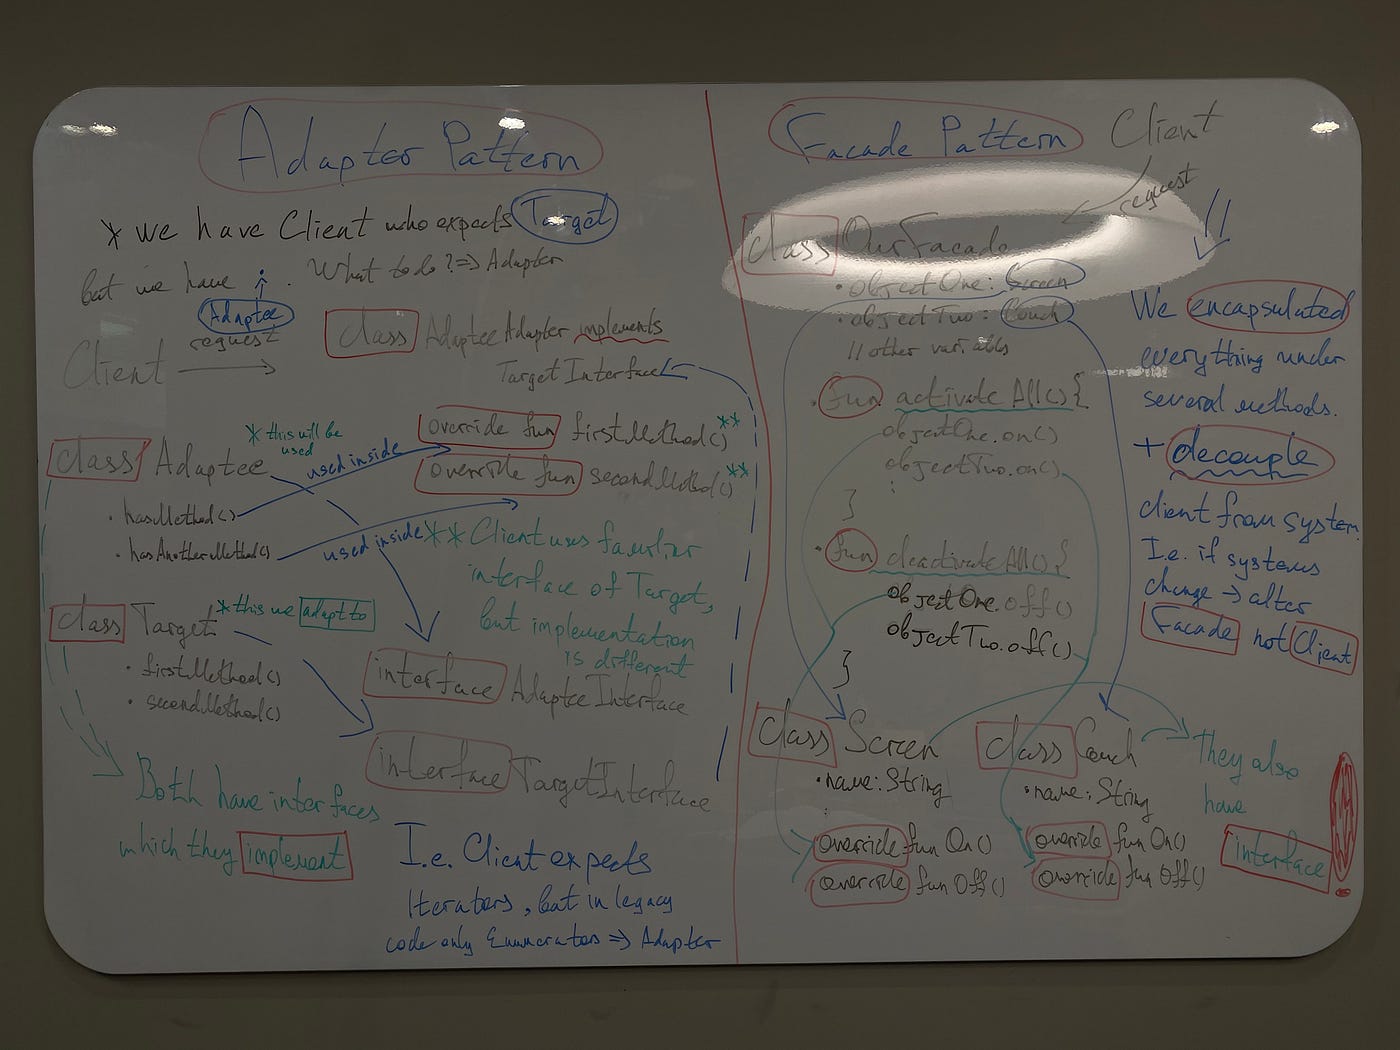 Adapter Pattern
* we have Client who expects Target
but we have Adaptee. What to do? => Adapter
request
Client
class AdapteeAdapter implements
TargetInterface
override fun firstMethod() **
override fun secondMethod() **
* this will be
used
class Adaptee
used inside
• hasMethod()
• hasAnotherMethod()
used inside
** Client uses familiar
interface of Target,
but implementation
is different
class Target
* this we adapt to
• firstMethod()
• secondMethod()
interface AdapteeInterface
interface TargetInterface
Both have interfaces
which they implement
I.e. Client expects
Iterators, but in legacy
code only Enumerators => Adapter
Facade Pattern
Client
request
class OurFacade
• objectOne: Screen
• objectTwo: Couch
// other variables
• fun activateAll() {
objectOne.on()
objectTwo.on()
:
}
• fun deactivateAll() {
objectOne.off()
objectTwo.off()
}
class Screen
• name: String
:
override fun On()
override fun Off()
class Couch
• name: String
override fun On()
override fun Off()
They also
have
interface
We encapsulated
everything under
several methods.
+ decouple
client from system.
I.e. if systems
change → alter
Facade not Client